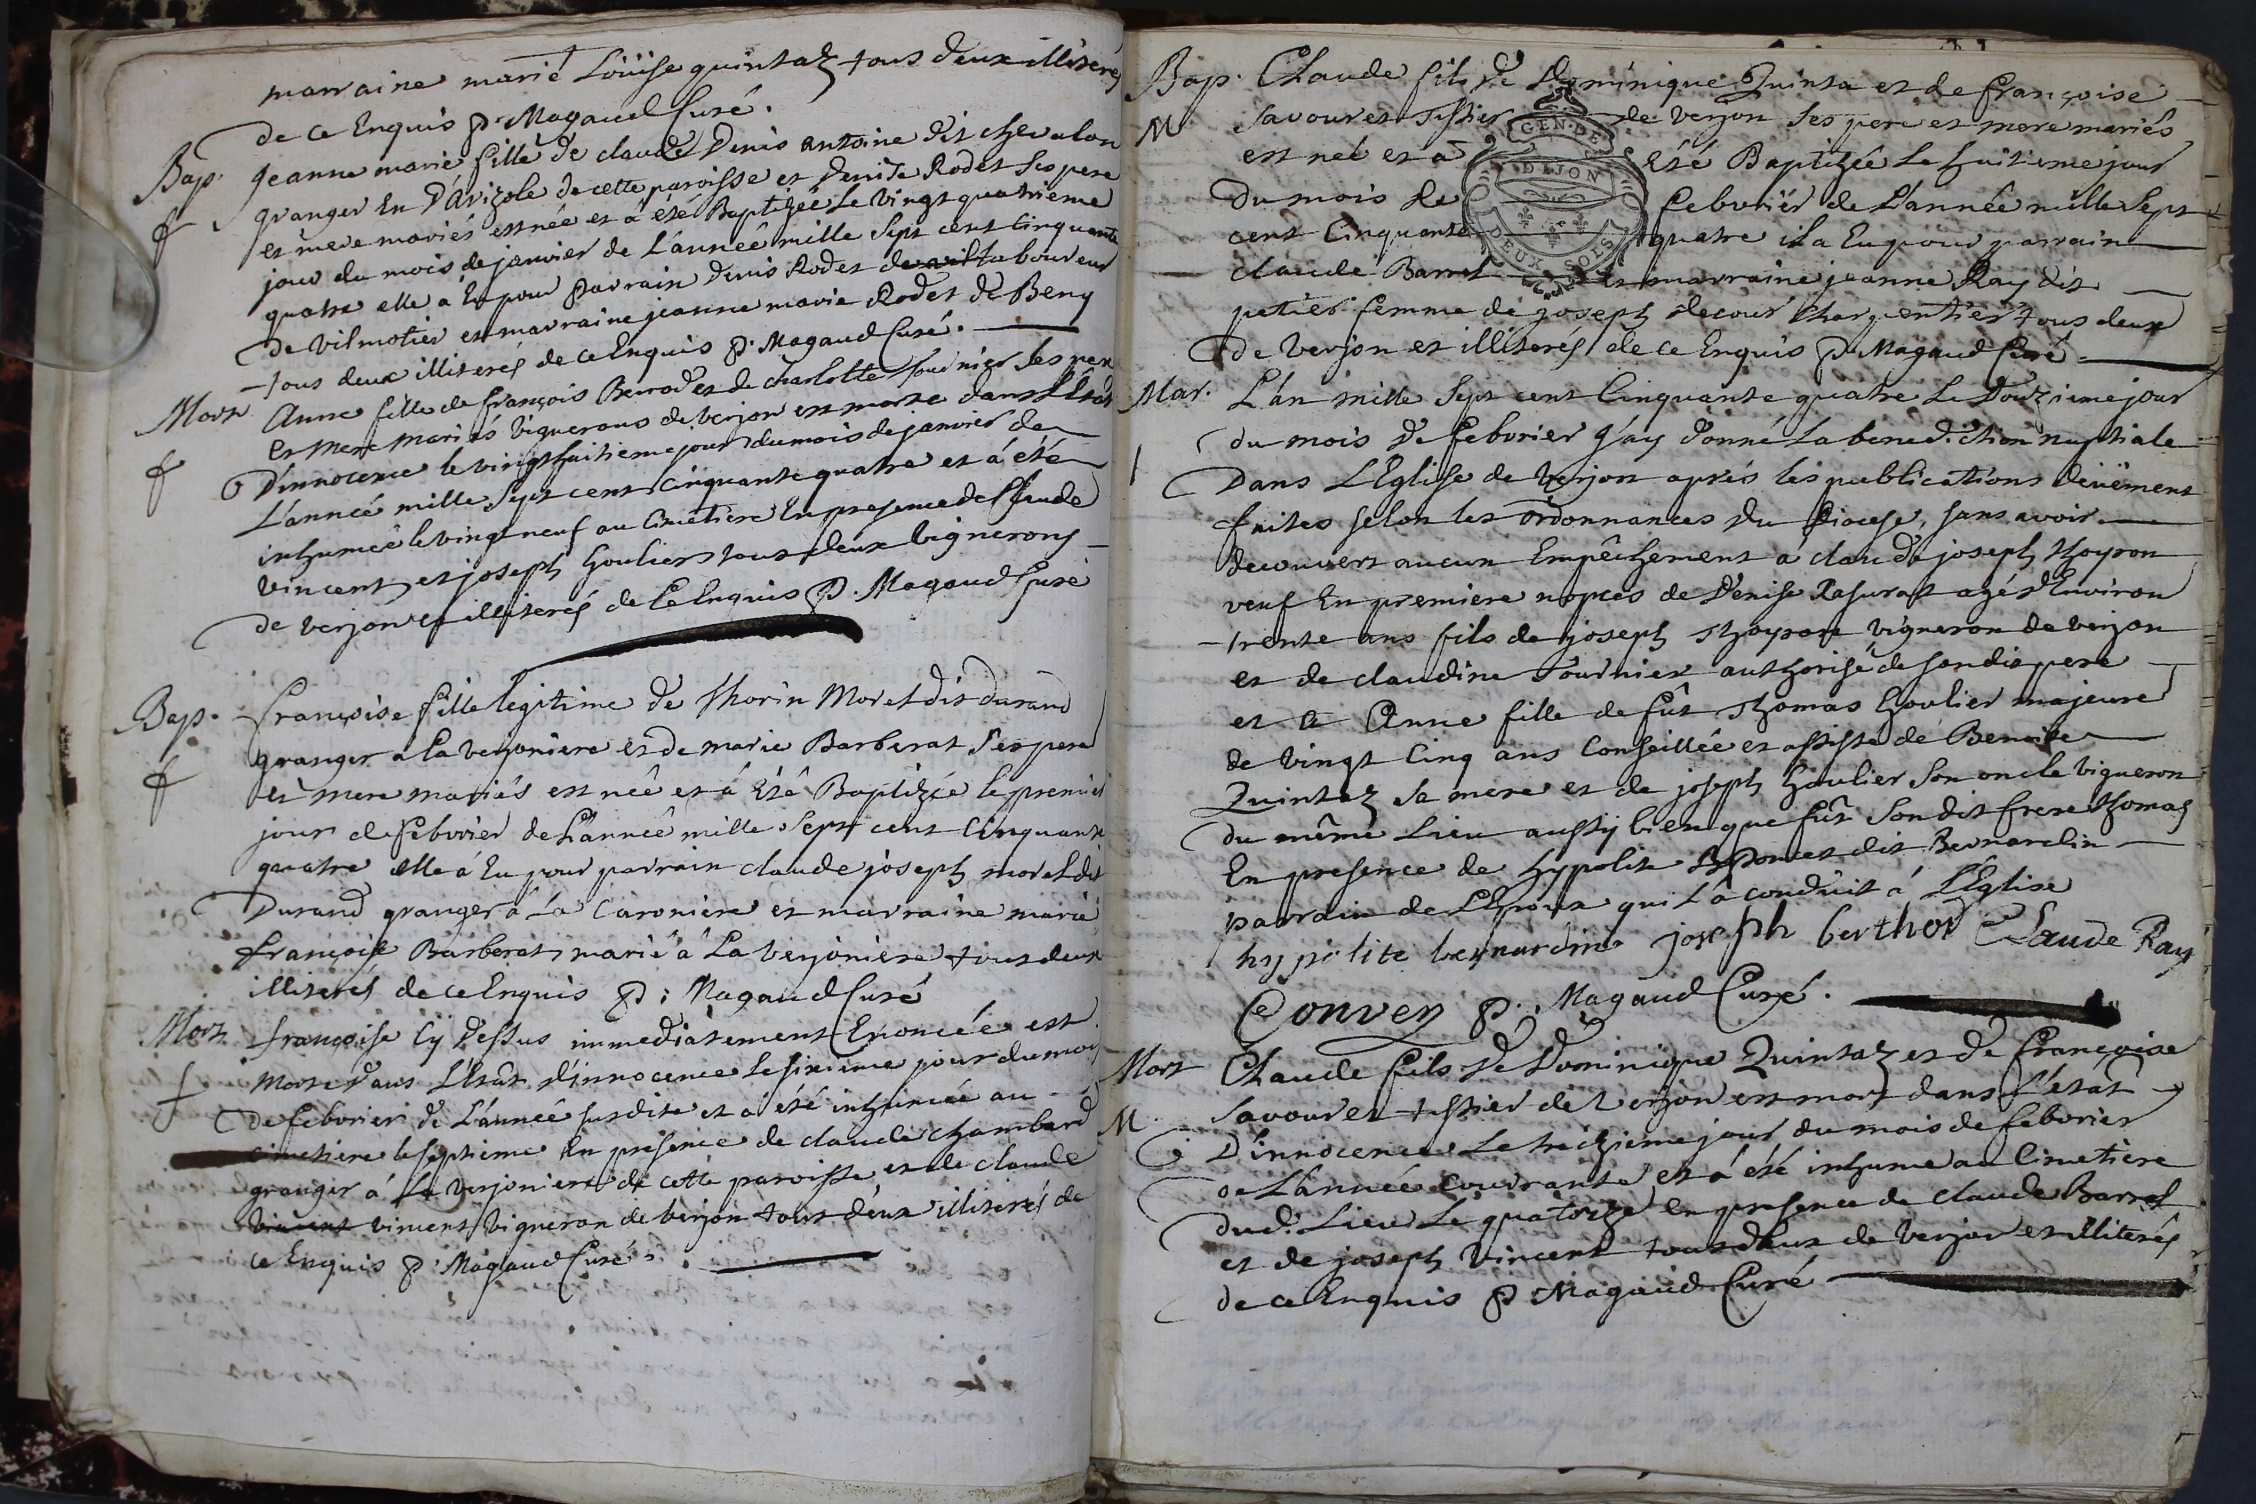 marraine marié Loüise quintaz tous deux illiterés
de ce Enquis P. Magaud Curé.
Bap. Jeanne marie fille de claude Denis antoine dit chevalon
granger En D'Avizole de cette paroisse et Denise Rodet ses pere
f et mere mariés est née et a été Baptizée Le vingt quatrieme
jour du mois de janvier de L'année mille Sept cent Cinquante
quatre elle a Eu pour Parrain Denis Rodet laboureur
de Vilmotier et marraine jeanne marie Rodet de Beny
tous deux illiterés de ce Enquis P. Magaud Curé.
Mort Anne fille de françois Berrod et de charlotte fournier ses pere
et Mere Mariés vignerons de verjon est morte dans L'Etat
f D'innocence le vingt huitieme jour du mois de janvier de
L'année mille Sept cent Cinquante quatre et a été
inhumée le vingt neuf au Cimetiere En presence de Claude
Vincent et joseph Goulier tous deux vignerons
de verjon et illiterés de Ce Enquis P. Magaud Curé
Bap. françoise fille legitime de Thorin Moret dit durand
granger a La verjoniere et de marie Barberat Ses pere
f et mere mariés est née et á Eté Baptizée le premier
jour de febvrier de L'année mille Sept cent Cinquante
quatre elle á Eu pour parrain claude joseph moret dit
Durand granger á La Caroniere et marraine marie
françoise Barberat marié á La verjoniere tous deux
illiterés de ce Enquis P. Magaud Curé
Mort françoise Cÿ Dessus immediatement Enoncée est
f Morte dans L'Etat d'innocence le sixieme jour du mois
de febvrier de L'année susdite et a été inhumée au
cimetiere le septieme En presence de claude chambard
granger á La verjoniere de cette paroisse et de claude
vincent vincent vigneron de verjon tous deux illiterés de
ce Enquis P. Magaud Curé.
Bap. Claude fils de Dominique Quinta et de françoise
M Savouret Tissier de verjon Ses pere et mere mariés
GEN. DE DIJON DEUX SOLS
est neé et a Eté Baptizée Le huitieme jour
Du mois de febvrier de L'année mille Sept
cent Cinquante quatre il a Eu pour parrain
claude Barret et marraine jeanne Ray dit
petier femme de joseph decour Charpentier tous deux
de verjon et illiterés de ce Enquis P. Magaud Curé.
Mar. L'an mille Sept cent Cinquante quatre Le Douzieme jour
du mois de febvrier j'ay donné La benediction nuptiale
1 Dans L'Eglise de verjon aprés les publications deüement
faites selon les ordonnances du Diocese, sans avoir
decouvert aucun Empêchement a claude joseph Thoyron
veuf En premiere nopces de Denise Rasurat agé d'Environ
trente ans fils de joseph Thoyron vigneron de verjon
et de claudine Tournier authorisé de son dit pere
et a Anne fille de fût Thomas Goulier majeure
de vingt Cinq ans Conseillée et assistée de Benoite
Quintaz sa mere et de joseph Goulier son oncle vigneron
du même Lieu aussÿ bien que fût Son dit frere Thomas
En presence de hypolite Bidonet dit Bernardin
parrain de L'Epoux qui L'a conduit á L'Eglise
hypolite bernardin joseph berthod Claude Ray
Convers P. Magaud Curé.
Mort Claude fils de Dominique Quintaz et de françoise
Savouret tissier de verjon est mort dans L'état
M D'innocence Le treizieme jour du mois de febvrier
de L'année courrante et a été inhumé au Cimetiere
dud. Lieu Le quatorze En presence de claude Barret
et de joseph Vincent tous deux de verjon et illiterés
de ce Enquis P. Magaud Curé